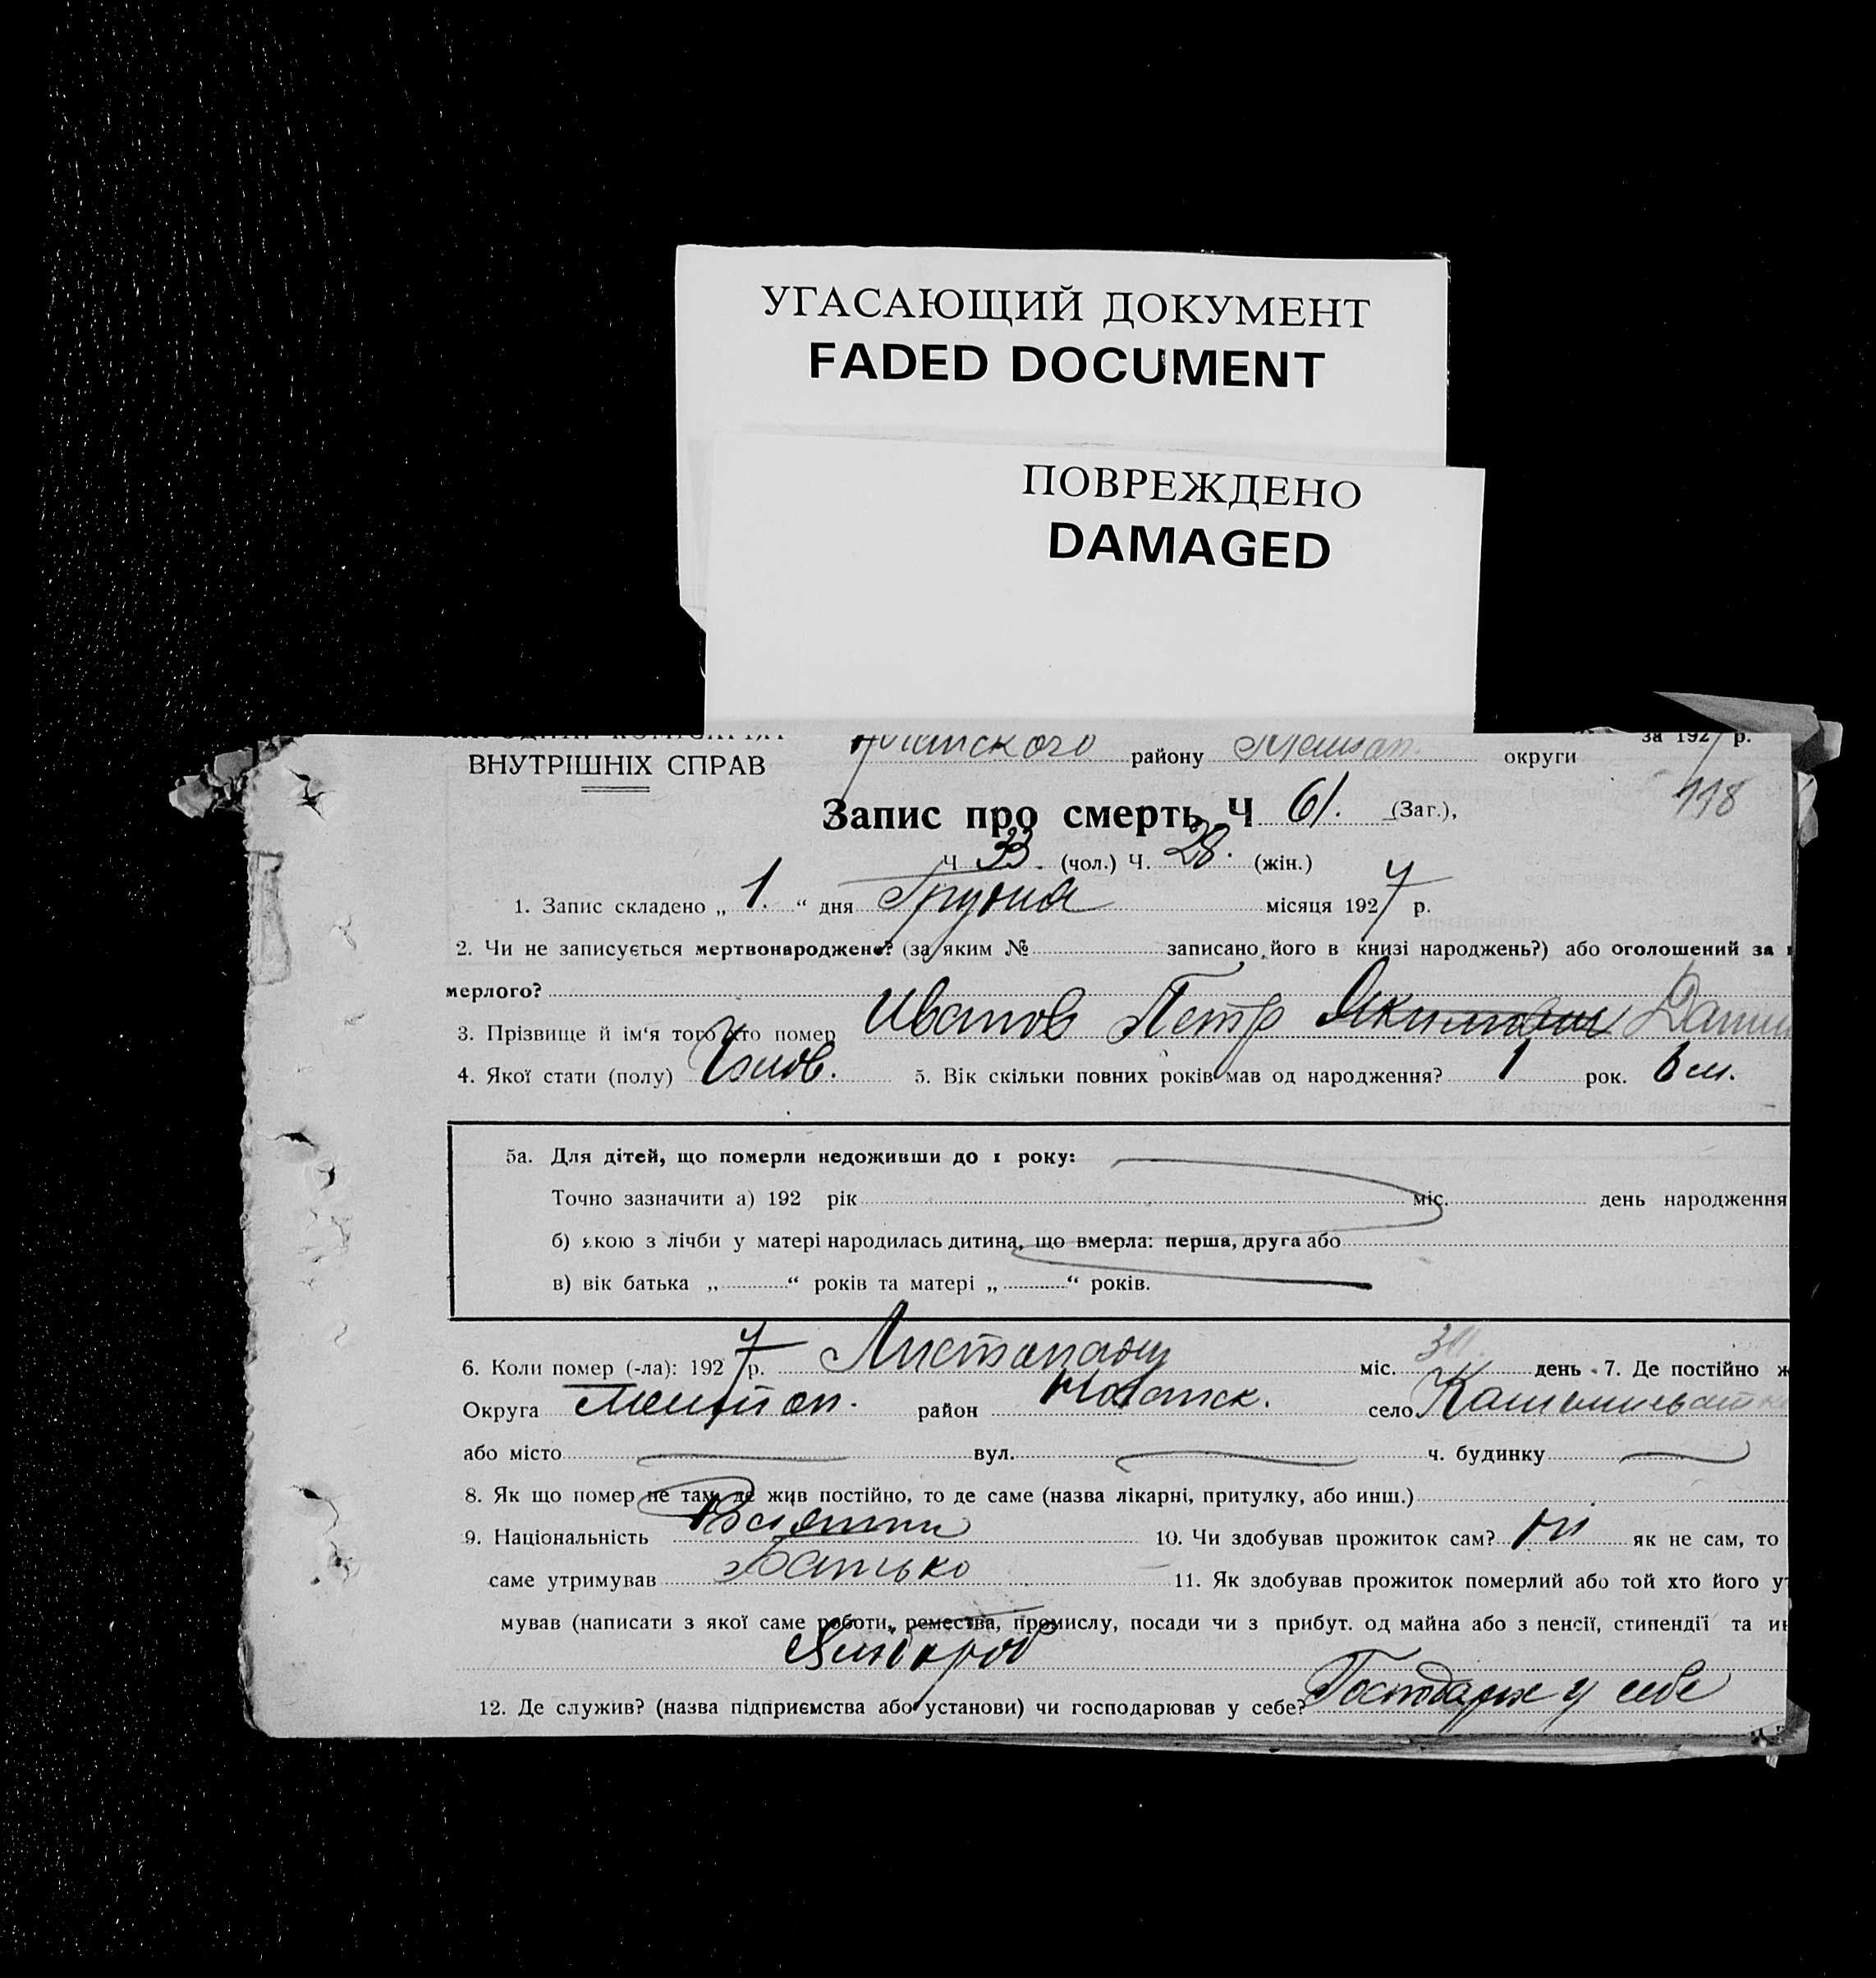 УГАСАЮЩИЙ ДОКУМЕНТ
FADED DOCUMENT
ПОВРЕЖДЕНО
DAMAGED
за 1927 р.
ВНУТРІШНІХ СПРАВ району округи
118
Запис про смерть Ч 61. (Заг.),
Ч 33. (чол.) Ч. 28. (жін.)
1. Запис складено „ 1. “ дня Грудня місяця 1927 р.
2. Чи не записується мертвонароджене? (за яким № записано його в книзі народжень?) або оголошений за
мерлого?
3. Прізвище й ім'я того хто помер Иванов Петр
4. Якої стати (полу) Чолов. 5. Вік скільки повних років мав од народження? 1 рок. 6 м.
5а. Для дітей, що померли недоживши до 1 року:
Точно зазначити а) 192 рік міс. день народження
б) якою з лічби у матері народилась дитина, що вмерла: перша, друга або
в) вік батька „ “ років та матері „ “ років.
6. Коли помер (-ла): 1927 р. Листопаду міс. 30 день 7. Де постійно ж
Округа район село
або місто вул. ч. будинку
8. Як що помер не там, де жив постійно, то де саме (назва лікарні, притулку, або инш.)
9. Національність 10. Чи здобував прожиток сам? Ні як не сам, то
саме утримував Батько 11. Як здобував прожиток померлий або той хто його ут
мував (написати з якої саме роботи, ремества, промислу, посади чи з прибут. од майна або з пенсії, стипендії та ин
Хлібороб
12. Де служив? (назва підприємства або установи) чи господарював у себе? Господарює у себе